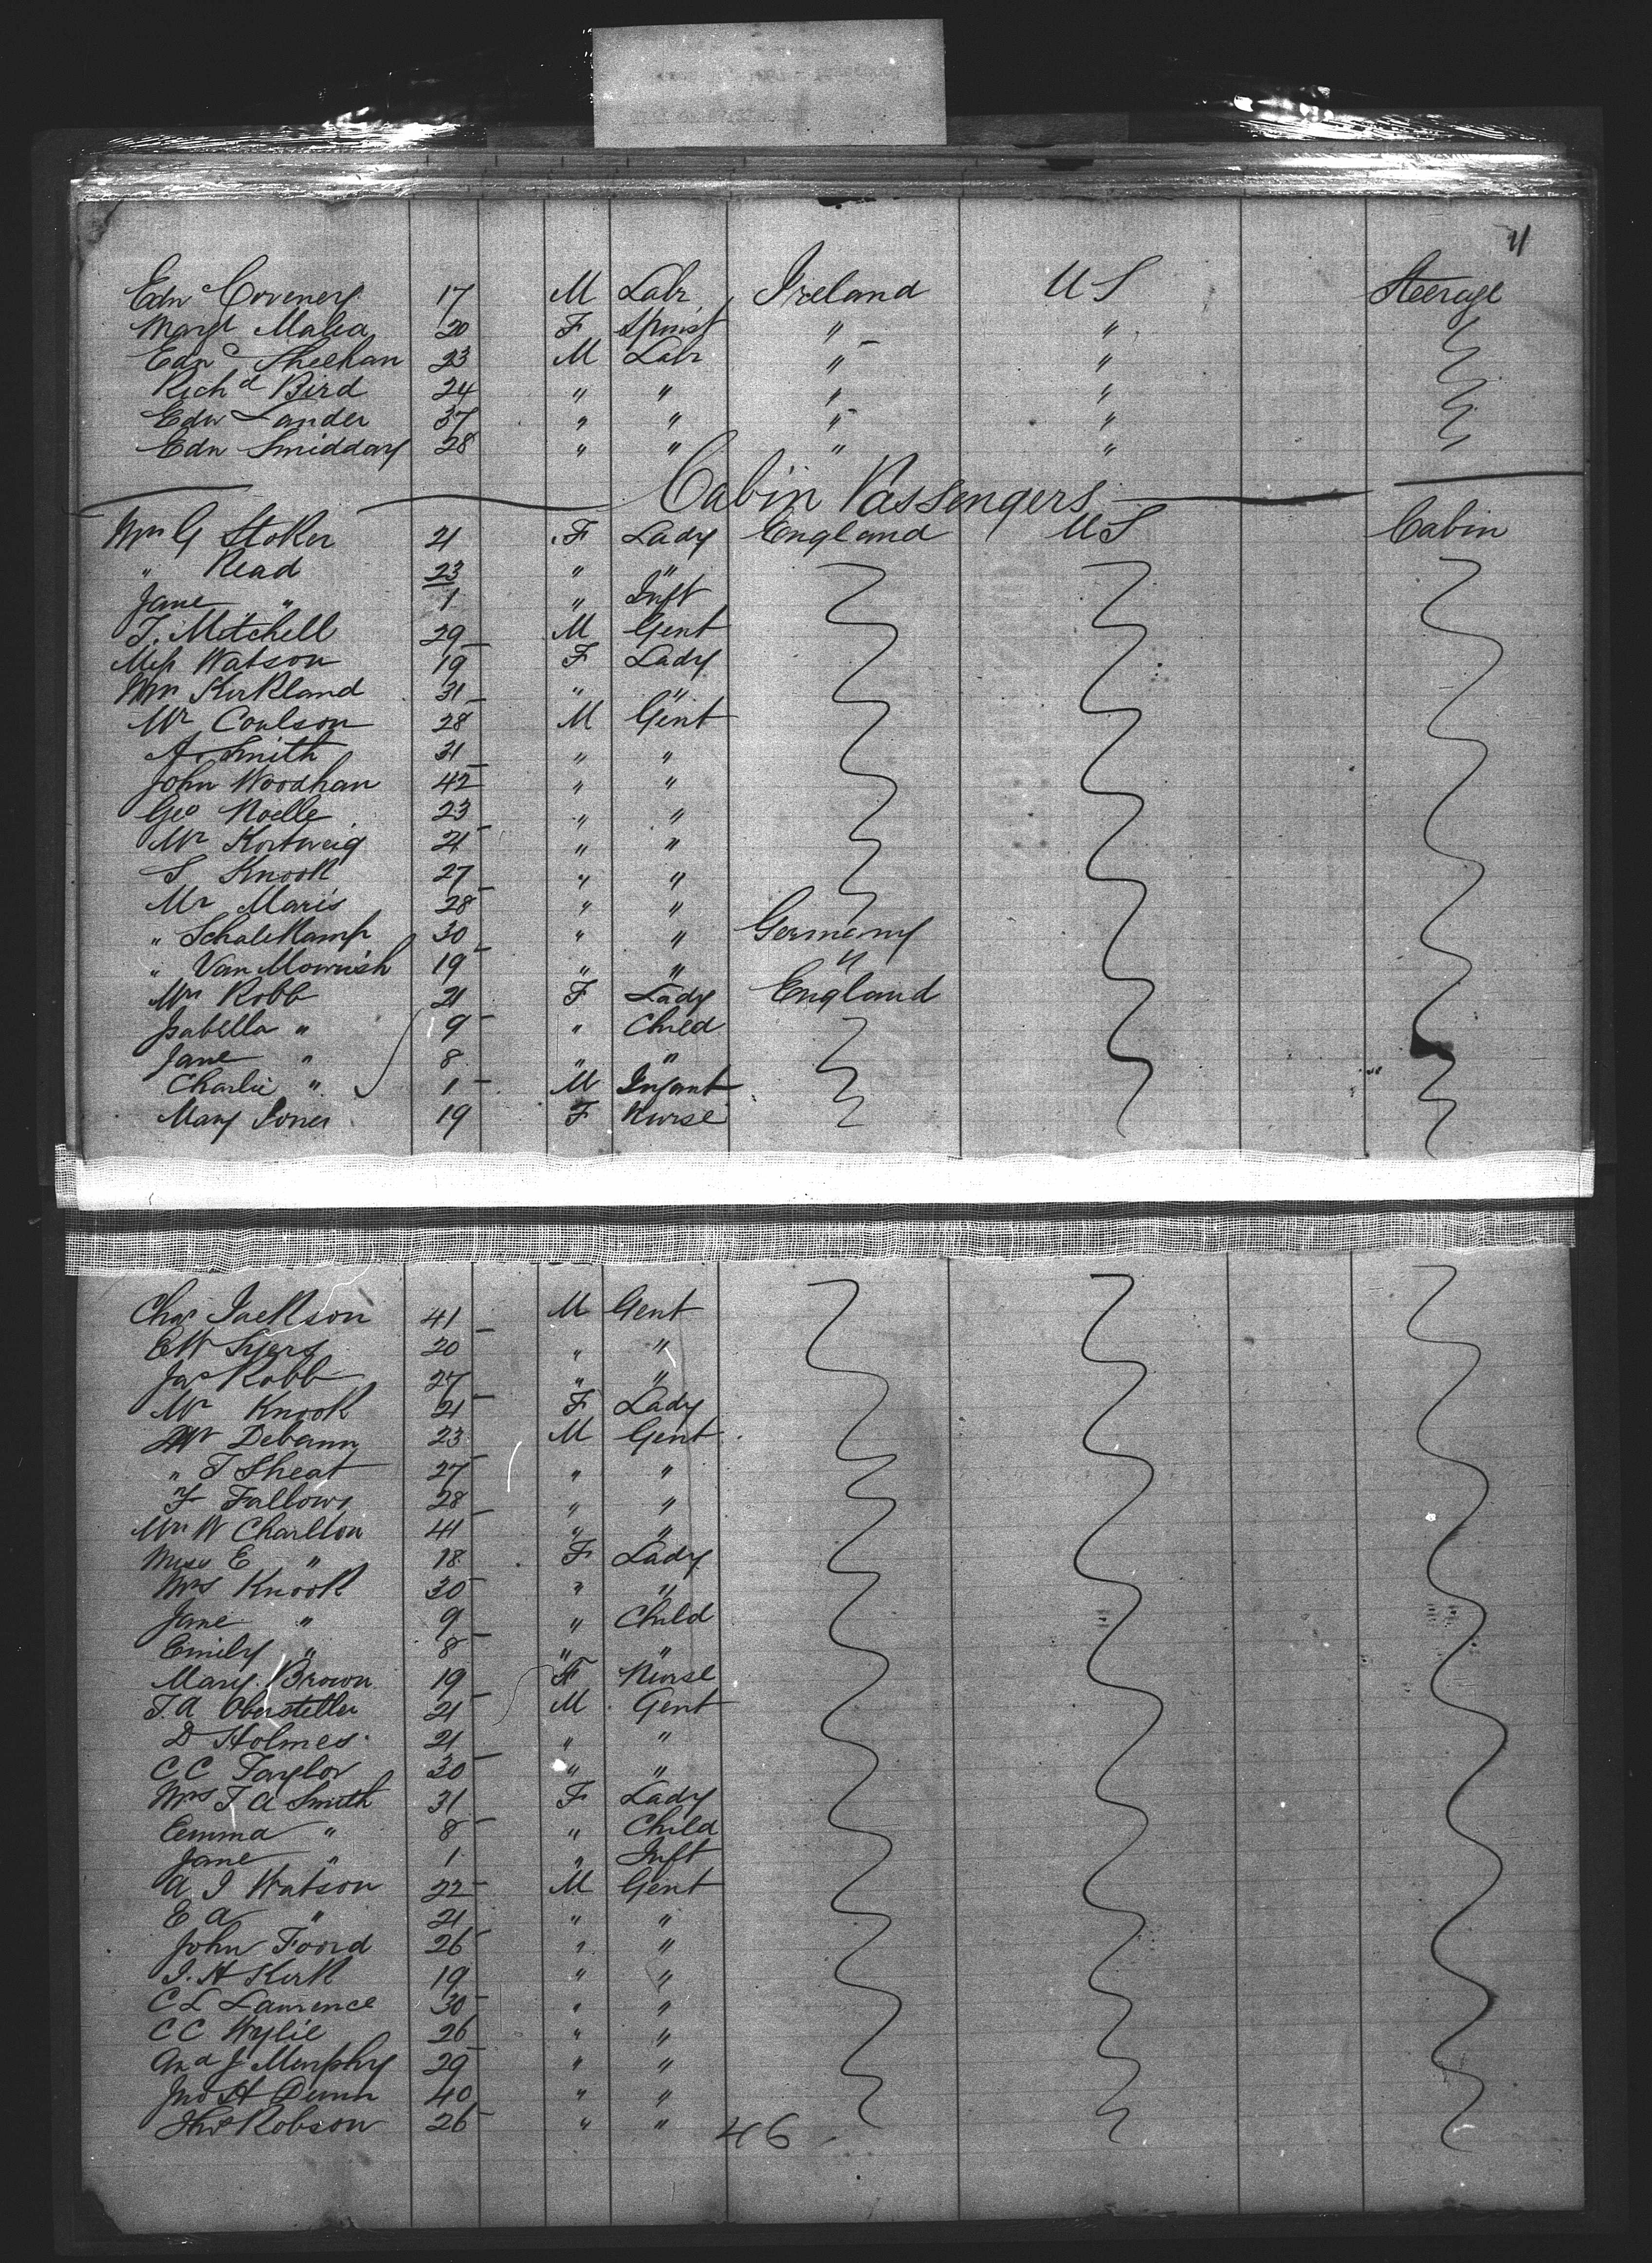 11
Edw Coveney 17 M Labr Ireland U S Steerage
Margt Malia 20 F Spinst " "
Edwd Sheehan 23 M Labr " "
Richd Bird 24 " " " "
Edw Lander 37 " " " "
Edw Smiddary 28 " " " "
Cabin Passengers
Mrs G Stoker 21 F Lady England U S Cabin
" Read 23 " "
Jane " 1 " Inft
T. Mitchell 29 M Gent
Miss Watson 19 F Lady
Mrs Kirkland 31 " "
Mr Coulson 28 M Gent
A. Smith 31 " "
John Woodhan 42 " "
Geo Noelle 23 " "
Mr Kortweig 21 " "
S Knook 27 " "
Mr Maris 28 " "
" Schalekamp 30 " " Germany
" Van 19 " " "
Mrs Robb 21 F Lady England
Isabella " 9 " Child
Jane " 8 " "
Charlie " 1 M Infant
Mary Jones 19 F Nurse
Chas Jackson 41 M Gent
E W Syers 20 " "
Jas Robb 27 " "
Mr Knook 21 F Lady
Mr Debann 23 M Gent
" T Sheat 27 " "
F Fallows 28 " "
Mr W Charlton 41 " "
Miss E " 18 F Lady
Mrs Knook 30 " "
Jane " 9 " Child
Emily " 8 " "
Mary Brown 19 F Nurse
T. A Obersteller 21 M Gent
D Holmes 21 " "
C C Taylor 30 " "
Mrs T A Smith 31 F Lady
Emma " 8 " Child
Jane " 1 " Inft
A J Watson 22 M Gent
E A " 21 " "
John Foord 26 " "
J. H Kirk 19 " "
C L Lawrence 30 " "
C C Wylie 26 " "
And J Murphy 29 " "
Jno H Dunn 40 " "
Thos Robson 26 " " 46